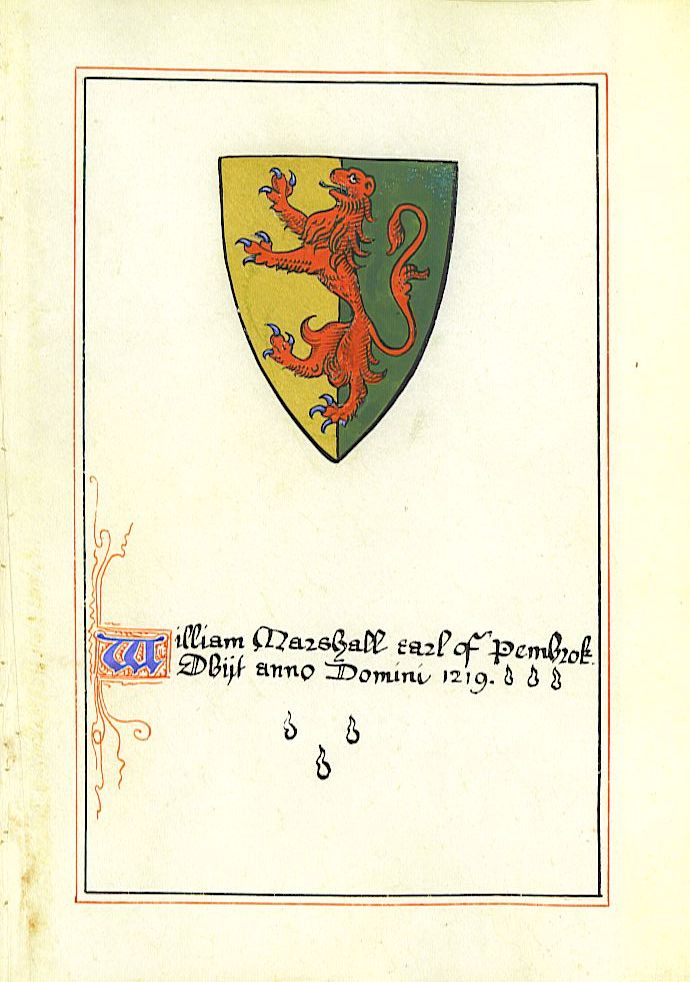 William Marshall earl of Pembrok.
Obijt anno Domini 1219.